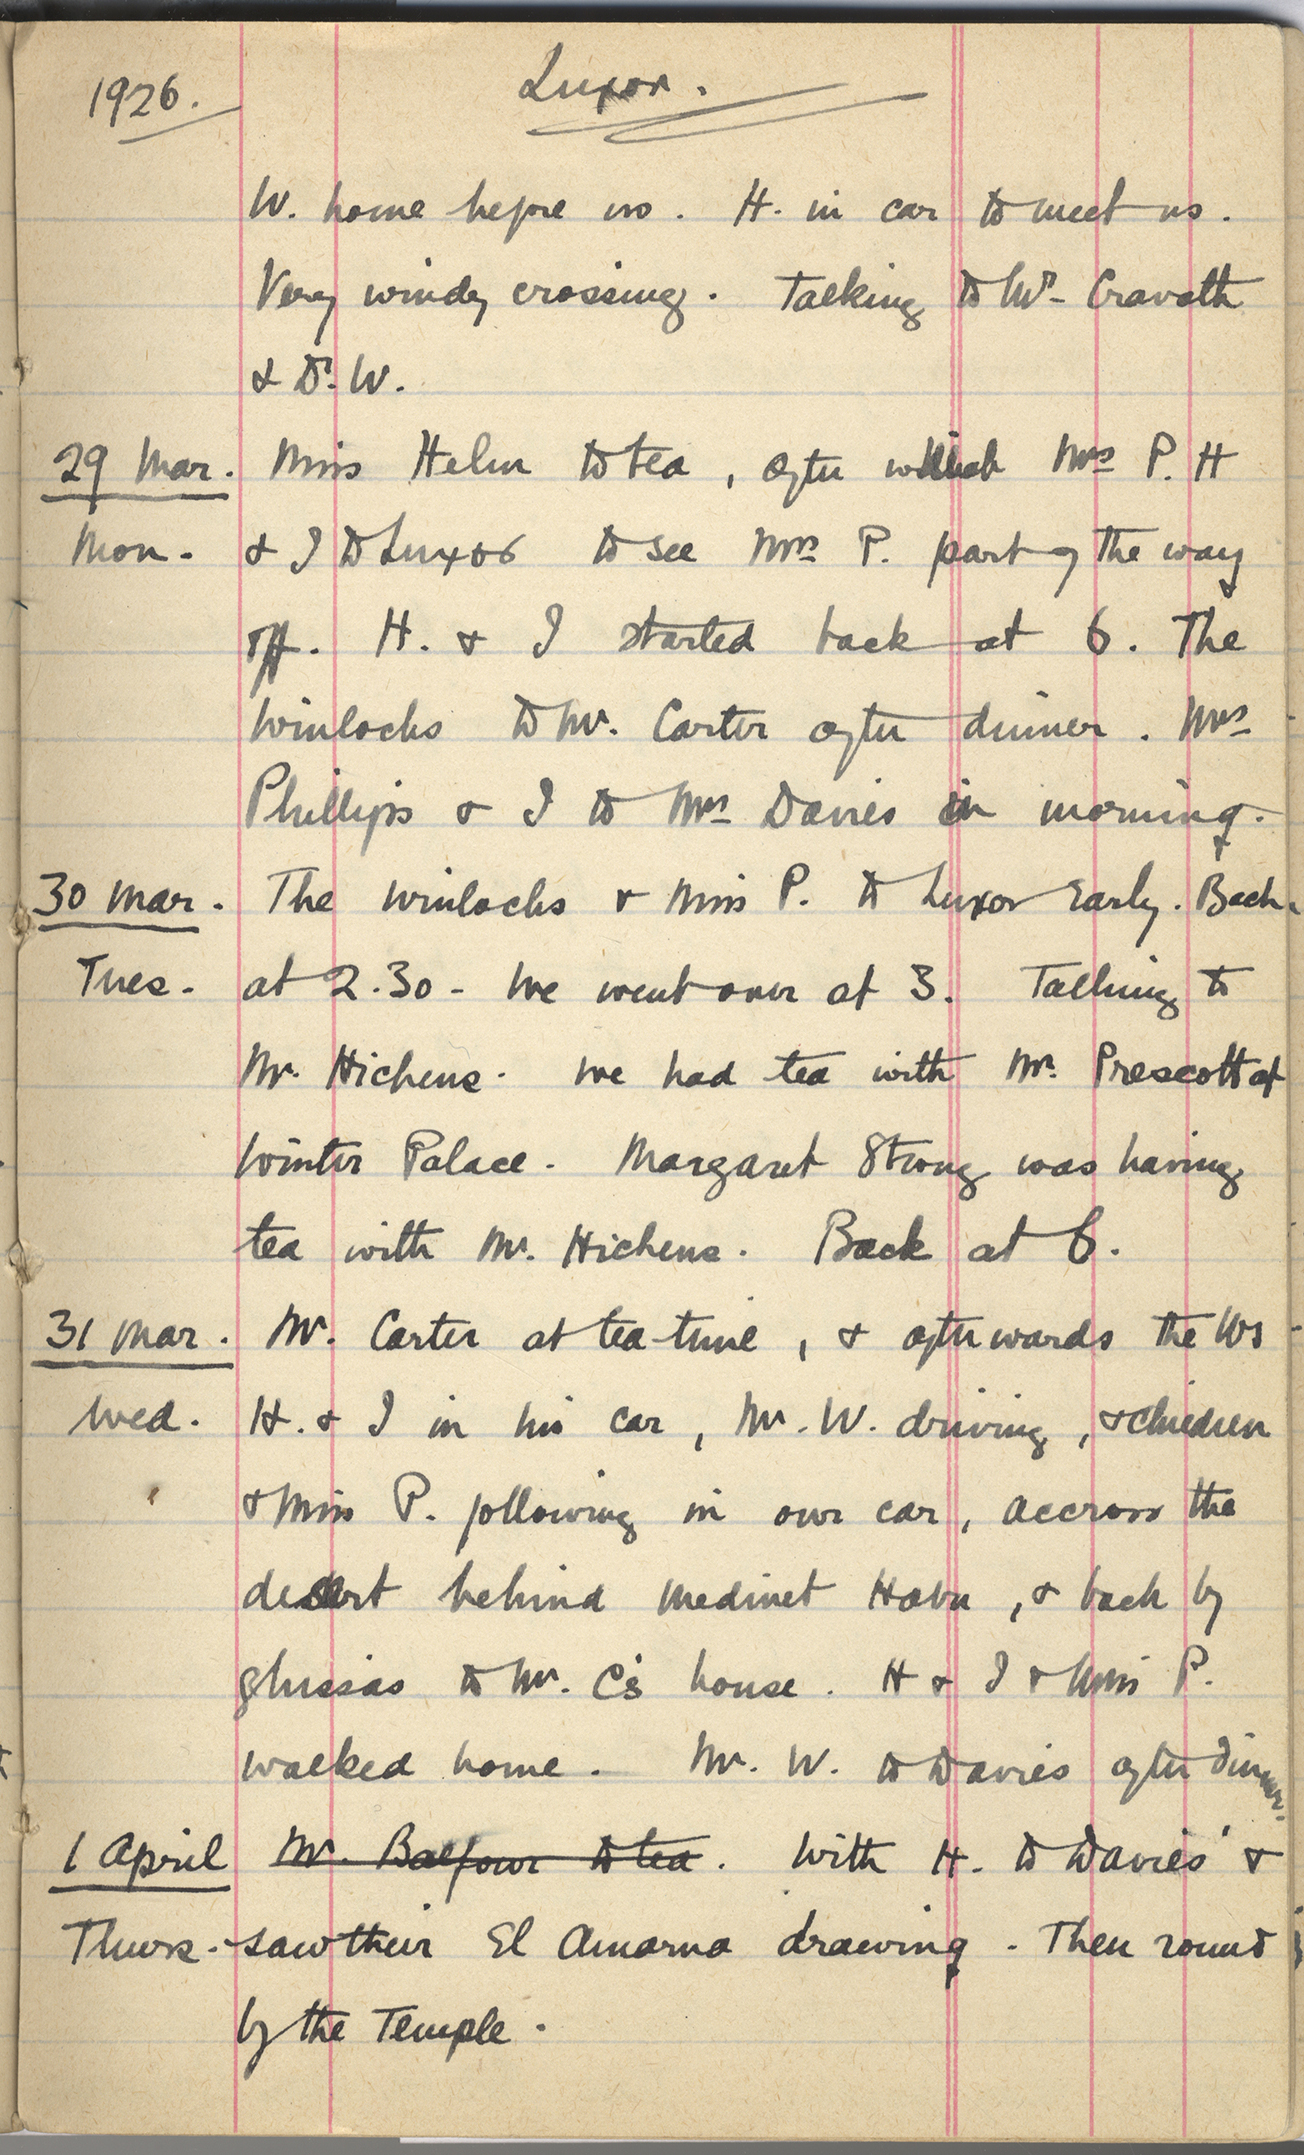 1926. Luxor.
W. home before us. H. in car to meet us.
Very windy crossing. Talking to Mr. Cravath
& Dr. W.
29 Mar. Miss Helm to tea, after which Mrs P. H
Mon. & I to Luxor to see Mrs P. part of the way
off. H. & I started back at 6. The
Winlocks to Mr. Carter after dinner. Mrs
Phillips & I to Mrs Davies in morning.
30 Mar. The Winlocks & Miss P. to Luxor early. Back
Tues. at 2.30 - We went over at 3. Talking to
Mr. Hichens. We had tea with Mr. Prescott at
Winter Palace. Margaret Strong was having
tea with Mr. Hichens. Back at 6.
31 Mar. Mr. Carter at tea-time, & afterwards the Ws
Wed. H. & I in his car, Mr. W. driving, & children
& Miss P. following in our car, accross the
desert behind Medinet Habu, & back by
ghissas to Mr. C's house. H & I & Miss P.
walked home. Mr. W. to Davies after dinner.
1 April Mr. Balfour to tea. With H. to Davies' &
Thurs. saw their El Amarna drawing. Then round
by the Temple.